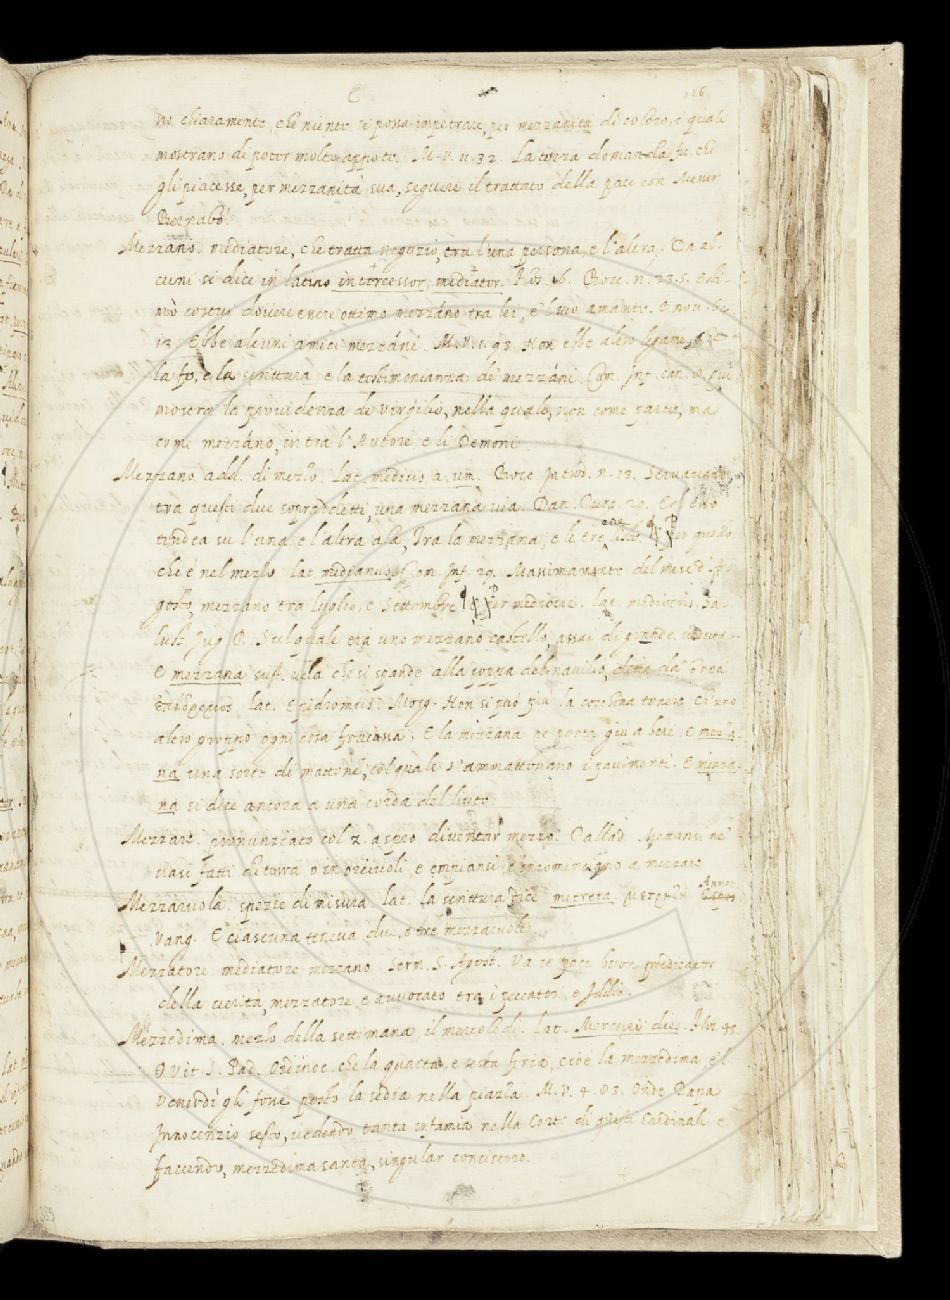 E
126
no chiaramente, che niente si possa impetrare, per mezzanità di coloro, i quali
mostrano di poter molto appo te. M. V. 11. 32. La terza domanda fu, che
gli piacesse, per mezzanità sua, seguire il trattato della pace con Messer
Bernabò.
Mezzano. mediatore, che tratta negozii, tra l'una persona, e l'altra. Da al-
cuni si dice in latino intercessor, mediator. Bocc. n. 23. 5. Esti-
mò costui dovere essere ottimo mezzano tra lei, e 'l suo amante. E nov.
Ebbe alcuni amici mezzáni. M. V. 1. 93. Non ebbe altro legame,
la fe, e la scrittura e la testimonianza de' mezzáni. Com. Inf. can. Qui
mostra la providenza de Virgilio, nella quale, non come parte, ma
come mezzáno, in tra l'Autore, e li Demoni.
Mezzano. add. di mezzo. lat. medius a, um. Bocc. introd. n. 13. Servavano,
tra questi due sopraddetti, una mezzana via. Dan. Purg. 29. Ed esso
tendea su l'una, e l'altra ala, Tra la mezzana, e le tre, Per quello
che è nel mezzo. lat. medianus. Com. Inf. 29. Massimamente del mese d'A-
gosto, mezzano tra luglio, e Settembre Per mediocre. lat. mediocris. Sa-
lust. Jug. R. Sul quale era uno mezzano castello, assai di grande veduta.
E mezzana sust. vela che si spande alla poppa del navilio, detta da' Greci
ἐπίδρομος. lat. Epidromus. Morg. Non si può più la
altro groppo ogni cosa fracassa. E la mezzana ne porta giù a bere. E mezza-
na una sorte di mattone, col quale s'ammattonano i pavimenti. E mezza-
na si dice ancora a una corda del liuto.
Mezzare. pronunziato col z. aspro diventar mezzo. Pallad. Mettansi ne'
vasi fatti di terra o in orciuoli, e empiansi, e incominciano a mezzare
Mezzaruola. spezie di misura. lat. la scrittura dice metreta. μετρητὴς Annot.
Vang. E ciascuna teneva due, o tre mezzaruole.
Mezzatore. mediatore mezzano. Serm. S. Agost. Va in pace buon predicator
della verità, mezzatore, e avvocato tra i peccatori, e Iddio.
Mezzedima. mezzo della settimana il mercoledì. lat. Mercurii dies. Bor. 45.
Vit. S. Pad. Ordinoe, che la quarta, e sesta feria, cioè la mezzedima, e 'l
Venerdì gli fosse posto la sedia nella piazza. M. V. 4. 85. Onde Papa
Innocenzio sesto, vedendo tanta infamia nella Corte di questi Cardinali e
faccendo, mezzedima santa, singular concistoro.